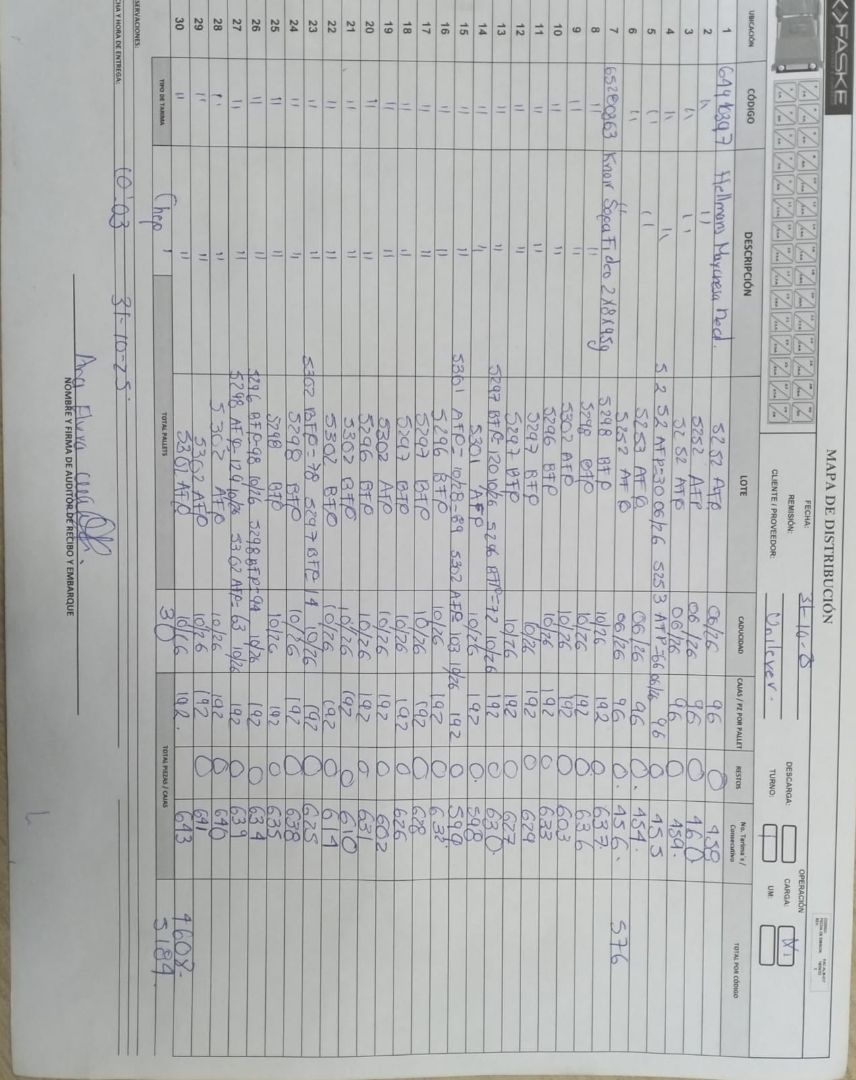 FASKE
MAPA DE DISTRIBUCIÓN
FECHA: 31-10-25
REMISIÓN:
CLIENTE / PROVEEDOR: Unilever.
OPERACIÓN
DESCARGA: CARGA: X
TURNO: UM:
UBICACIÓN CÓDIGO DESCRIPCIÓN LOTE CADUCIDAD CAJAS / PZ POR PALLET RESTOS No. Tarima's / Consecutivo TOTAL POR CÓDIGO
1 Hellmans Mayonesa 5252 ATP 06/26 96 0
2 " " 5252 ATP 06/26 96 0 460
3 " " 5252 ATP 06/26 96 0 459.
4 " " 5252 ATP=30 06/26 5253 ATP=66 06/26 96 0 455
5 " " 5253 ATP 06/26 96 0. 454.
6 " " 5252 ATP 06/26 96 0. 456. 576
7 65280263 Knorr Sopa Fideo 2X8X95g 5298 BTP 10/26 192 0 637
8 " " 5298 BTP 10/26 192 0 636
9 " " 5302 ATP 10/26 192 0 603
10 " " 5296 BTP 10/26 192 0 633
11 " " 5297 BTP 10/26 192 0 629
12 " " 5297 BTP 10/26 192 0 627
13 " " 5297 BTP=120 10/26 5296 BTP=72 10/26 192 0 630.
14 " " 5301 ATP 10/26 192 0. 598
15 " " 5301 ATP= 10/28-89 5302 ATP= 103 10/26 192 0 599
16 " " 5296 BTP 10/26 192 0 632
17 " " 5297 BTP 10/26 192 0 628
18 " " 5297 BTP 10/26 192 0 626
19 " " 5302 ATP 10/26 192 0 602
20 " " 5296 BTP 10/26 192 0 631
21 " " 5302 BTP 10/26 192 0 610
22 " " 5302 BTP 10/26 192 0 611
23 " " 5302 BTP=78 5297 BTP=114 10/26 192 0 625
24 " " 5298 BTP 10/26 192 0 638
25 " " 5298 BTP 10/26 192 0 635
26 " " 5296 BTP=98 10/26 5298 BTP=94 10/26 192 0 634
27 " " 5298 ATP=129 10/26 5302 ATP=63 10/26 192 0 639
28 " " 5302 ATP 10/26 192 0 640
29 " " 5302 ATP 10/26 192 0 641
30 " " 5301 ATP 10/26 192. 643 4608-
TIPO DE TARIMA Chep TOTAL PALLETS 30 TOTAL PIEZAS / CAJAS 5184
OBSERVACIONES:
FECHA Y HORA DE ENTREGA: 10:03 31-10-25.
Ana Elvira
NOMBRE Y FIRMA DE AUDITOR DE RECIBO Y EMBARQUE